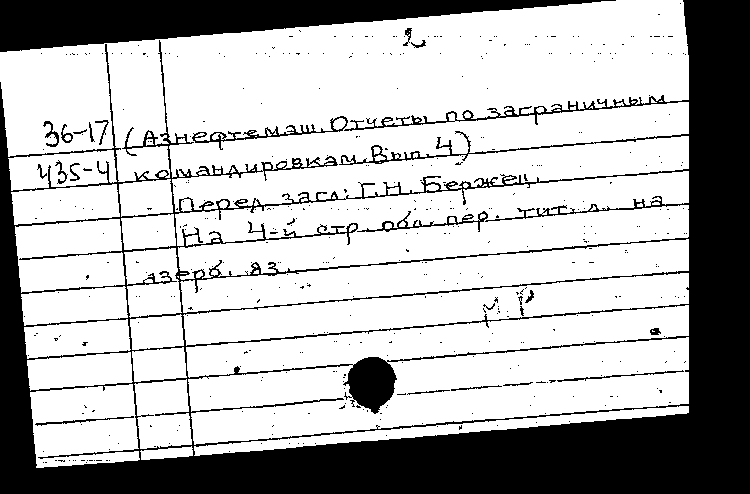 2
36-17 (Азнефтемаш. Отчеты по заграничным
435-4 командировкам. Вып. 4)
Перед загл: Г.Н. Бержец.
На 4-й стр. обл. пер. тит. л. на
азерб. яз.
М Р